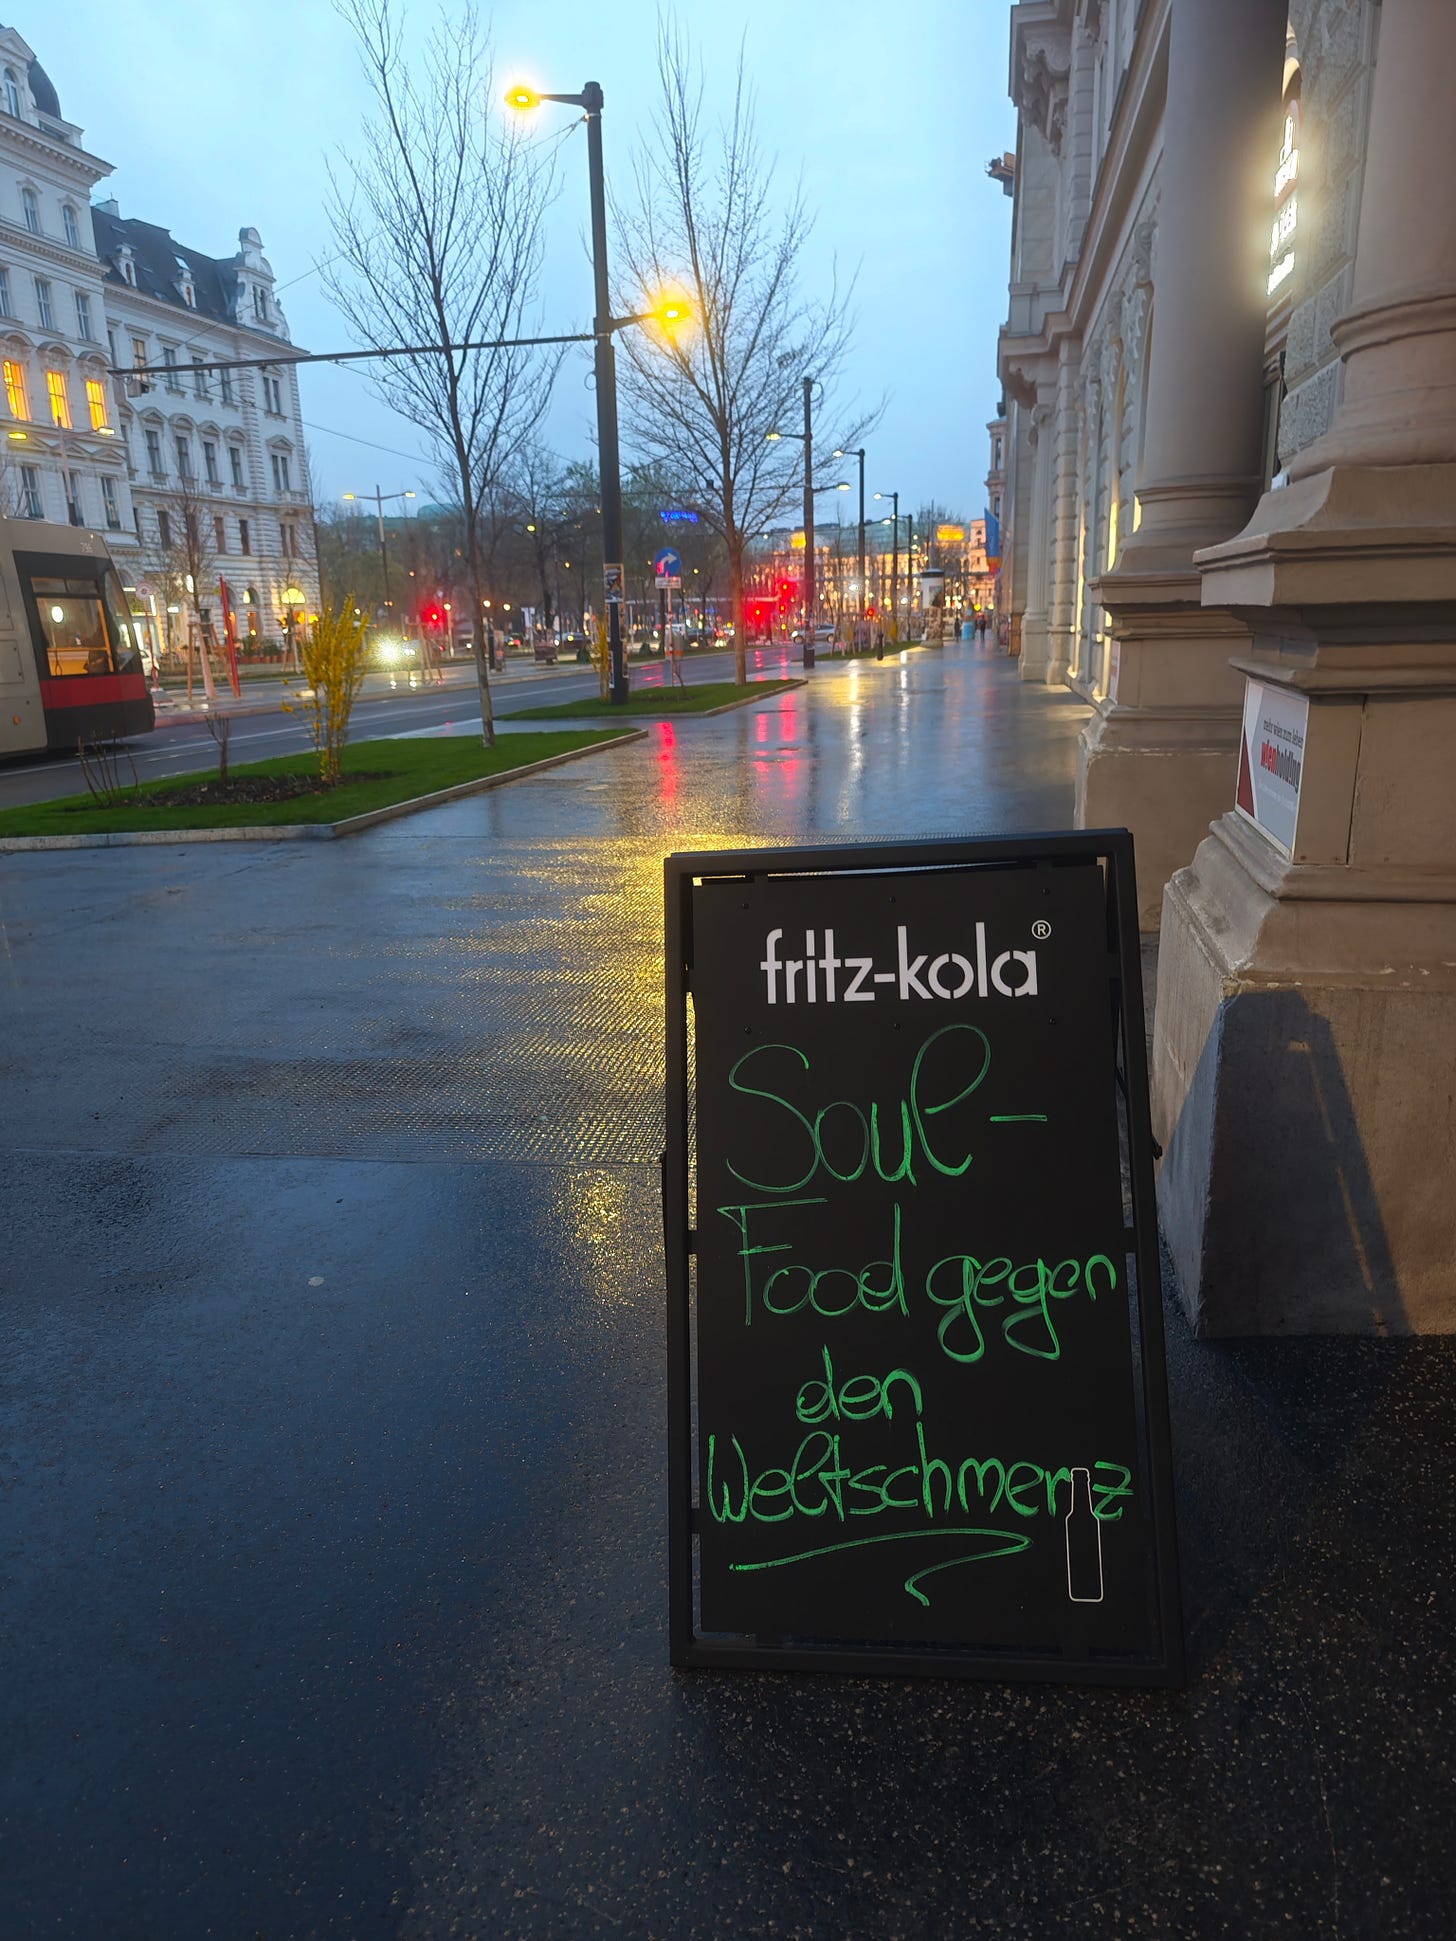 796
mehr wien zum leben
wienholding
fritz-kola®
Soul-
Food gegen
den
Weltschmerz